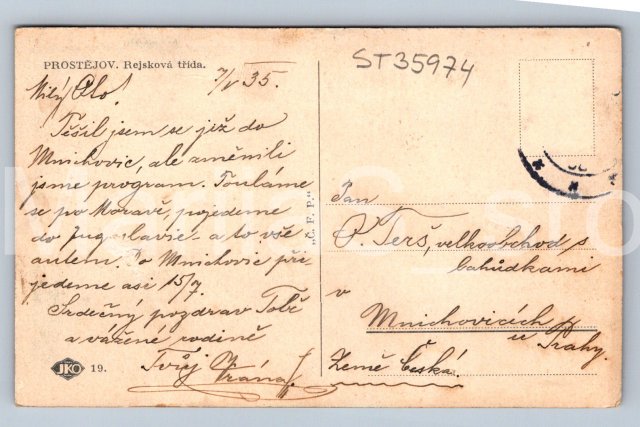 PROSTĚJOV. Rejskova třída.
ST35974
7/V 35.
Milý Oto!
Těšil jsem se již do
Mnichovic, ale změnili
jsme program. Touláme
se po Moravě, pojedeme
do Jugoslavie a to vše
autem. Do Mnichovic při
jedeme asi 15/7.
Srdečný pozdrav Tobě
a vážené rodině
Tvůj Vrána
JKO 19.
"Č. F. P."
Pan
O. Terš, velkoobchod s
lahůdkami
v
Mnichovicích
u Prahy.
Země Česká.